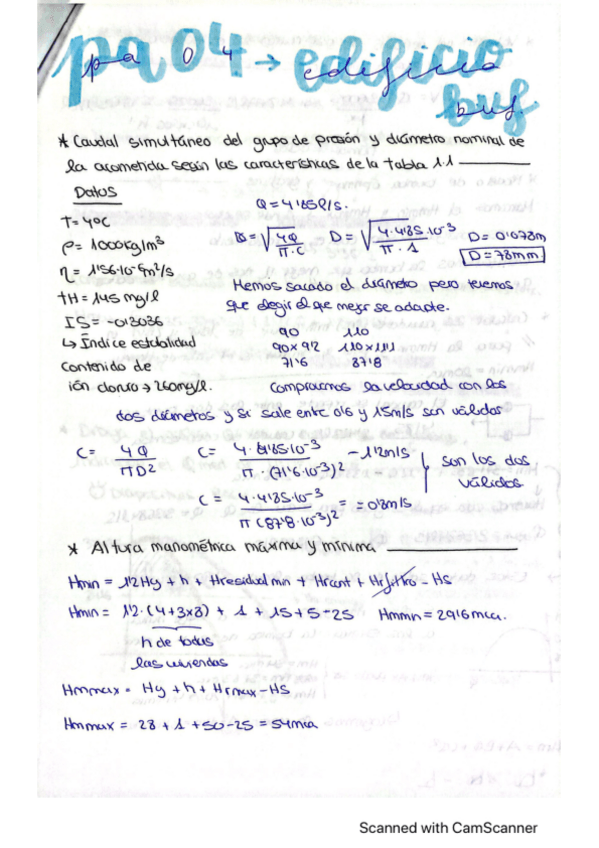 pa 04 → edificio
bus.
* Caudal simultáneo del grupo de presión y diámetro nominal de
la acometida según las características de la tabla 1.1
Datos
Q = 4'185 l/s.
T = 4ºC
ρ = 1000 kg/m³
D = √(4Q / π·C) D = √(4·4'185·10⁻³ / π·1) D = 0'073m
D = 73mm
η = 1'56·10⁻⁶ m²/s
TH = 145 mg/l
IS = -0'3036
↳ Índice estabilidad
Contenido de
ión cloruro → 260mg/l.
Hemos sacado el diámetro pero tenemos
que elegir el que mejor se adapte.
90 110
90x9'2 110x11'1
71'6 87'8
Comprobamos la velocidad con los
dos diámetros y si sale entre 0'6 y 1'5m/s son válidos
C = 4Q / πD² C = 4·4'185·10⁻³ / π·(71'6·10⁻³)² - 1'2m/s
C = 4·4'185·10⁻³ / π(87'8·10⁻³)² = = 0'8m/s
son los dos
válidos
* Altura manométrica máxima y mínima
Hmin = 1'2Hg + h + Hresidual min + Hcont + Hfiltro - Hs
Hmin = 1'2·(4+3x8) + 1 + 15 + 5 - 25 Hmmn = 29'6 mca.
h de todas
las viviendas
Hmmax = Hg + h + Hrmax - Hs
Hmmax = 28 + 1 + 50 - 25 = 54mca
Scanned with CamScanner